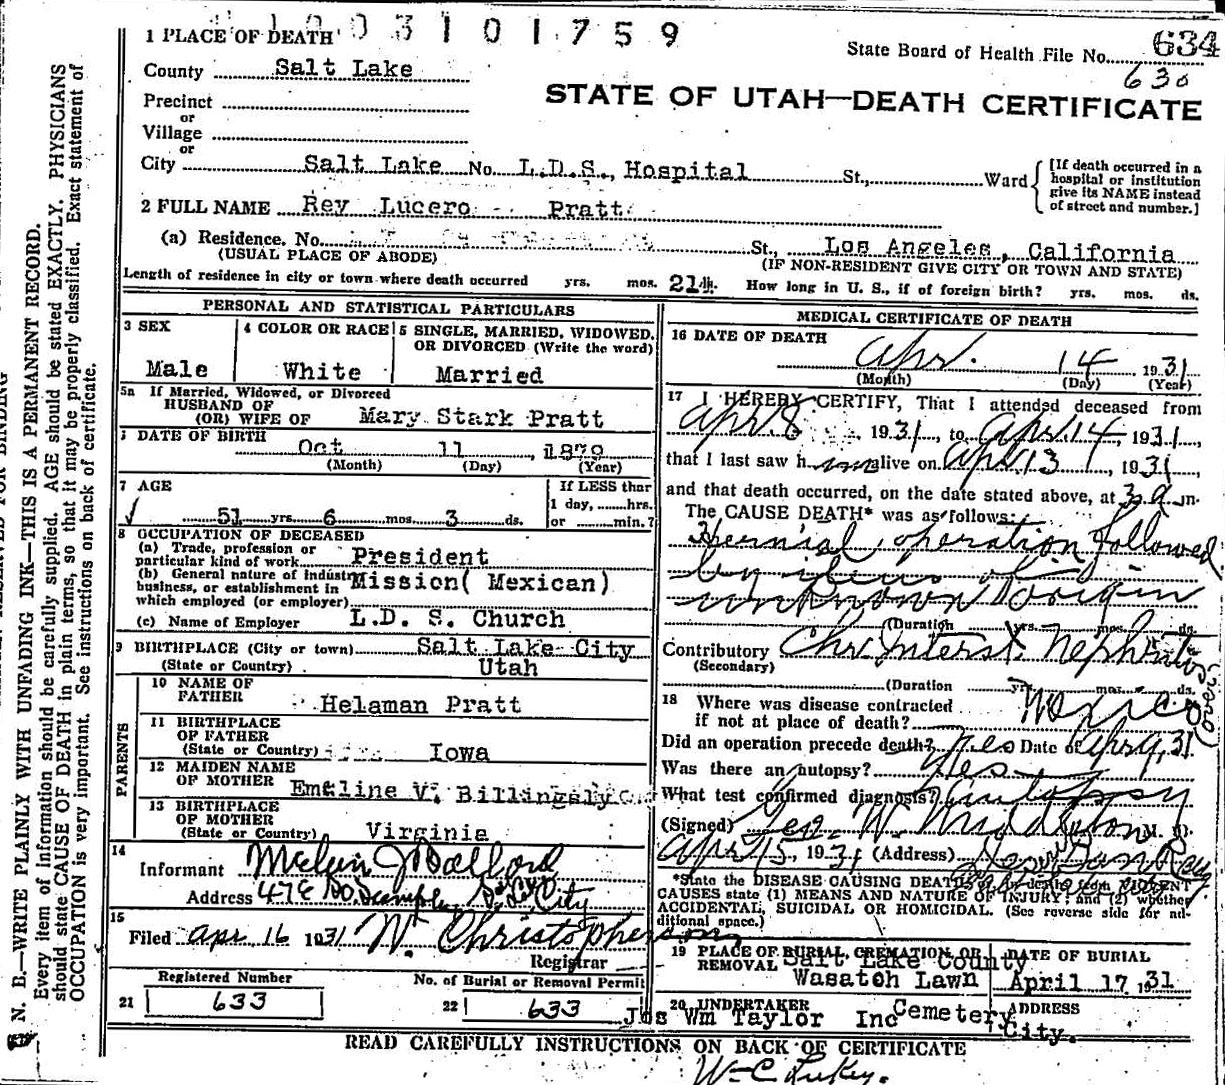 1003101759
1 PLACE OF DEATH
State Board of Health File No. 634
630
County Salt Lake
STATE OF UTAH—DEATH CERTIFICATE
Precinct
or
Village
or
City Salt Lake No. L.D.S., Hospital St., Ward
[If death occurred in a
hospital or institution
give its NAME instead
of street and number.]
2 FULL NAME Rey Lucero Pratt
(a) Residence. No. St., Los Angeles, California
(USUAL PLACE OF ABODE) (IF NON-RESIDENT GIVE CITY OR TOWN AND STATE)
Length of residence in city or town where death occurred yrs. mos. 21 ds. How long in U. S., if of foreign birth? yrs. mos. ds.
PERSONAL AND STATISTICAL PARTICULARS
3 SEX 4 COLOR OR RACE 5 SINGLE, MARRIED, WIDOWED,
OR DIVORCED (Write the word)
Male White Married
5a If Married, Widowed, or Divorced
HUSBAND OF
(OR) WIFE OF Mary Stark Pratt
DATE OF BIRTH
Oct 11, 1879
(Month) (Day) (Year)
7 AGE If LESS than
1 day, hrs.
51 yrs. 6 mos. 3 ds. or min.?
8 OCCUPATION OF DECEASED
(a) Trade, profession or
particular kind of work President
(b) General nature of industry
business, or establishment in Mission( Mexican)
which employed (or employer)
(c) Name of Employer L.D. S. Church
9 BIRTHPLACE (City or town) Salt Lake City
(State or Country) Utah
PARENTS
10 NAME OF
FATHER Helaman Pratt
11 BIRTHPLACE
OF FATHER
(State or Country) Iowa
12 MAIDEN NAME
OF MOTHER Emeline V. Billingsly
13 BIRTHPLACE
OF MOTHER
(State or Country) Virginia
14
Informant Melvin J Ballard
Address 47 E So Temple City
15
Filed apr 16 1931 W. Christopherson
Registrar
Registered Number No. of Burial or Removal Permit
21 633 22 633
MEDICAL CERTIFICATE OF DEATH
16 DATE OF DEATH
Apr. 14 1931
(Month) (Day) (Year)
17 I HEREBY CERTIFY, That I attended deceased from
Apr 8, 1931, to Apr 14, 1931,
that I last saw him alive on Apr 13, 1931,
and that death occurred, on the date stated above, at 3 a m.
The CAUSE DEATH* was as follows:
Hernial operation followed
by ileus of
unknown origin
(Duration yrs. mos. ds.
Contributory Chr. Interst. Nephritis
(Secondary)
(Duration yrs. mos. ds.
18 Where was disease contracted
if not at place of death? Mexico
Did an operation precede death? Yes Date of Apr 9, 31
Was there an autopsy? Yes
What test confirmed diagnosis? Autopsy
(Signed) Geo. W. Middleton M. D.
Apr 15, 1931 (Address)
*State the DISEASE CAUSING DEATH, or in deaths from VIOLENT
CAUSES state (1) MEANS AND NATURE OF INJURY; and (2) whether
ACCIDENTAL, SUICIDAL OR HOMICIDAL. (See reverse side for additional space.)
19 PLACE OF BURIAL, CREMATION OR
REMOVAL Salt Lake County
Wasatch Lawn
Cemetery
DATE OF BURIAL
April 17 1931
20 UNDERTAKER
Jos Wm Taylor Inc
ADDRESS
City.
READ CAREFULLY INSTRUCTIONS ON BACK OF CERTIFICATE
N. B.—WRITE PLAINLY WITH UNFADING INK—THIS IS A PERMANENT RECORD.
Every item of information should be carefully supplied. AGE should be stated EXACTLY. PHYSICIANS
should state CAUSE OF DEATH in plain terms, so that it may be properly classified. Exact statement of
OCCUPATION is very important. See instructions on back of certificate.